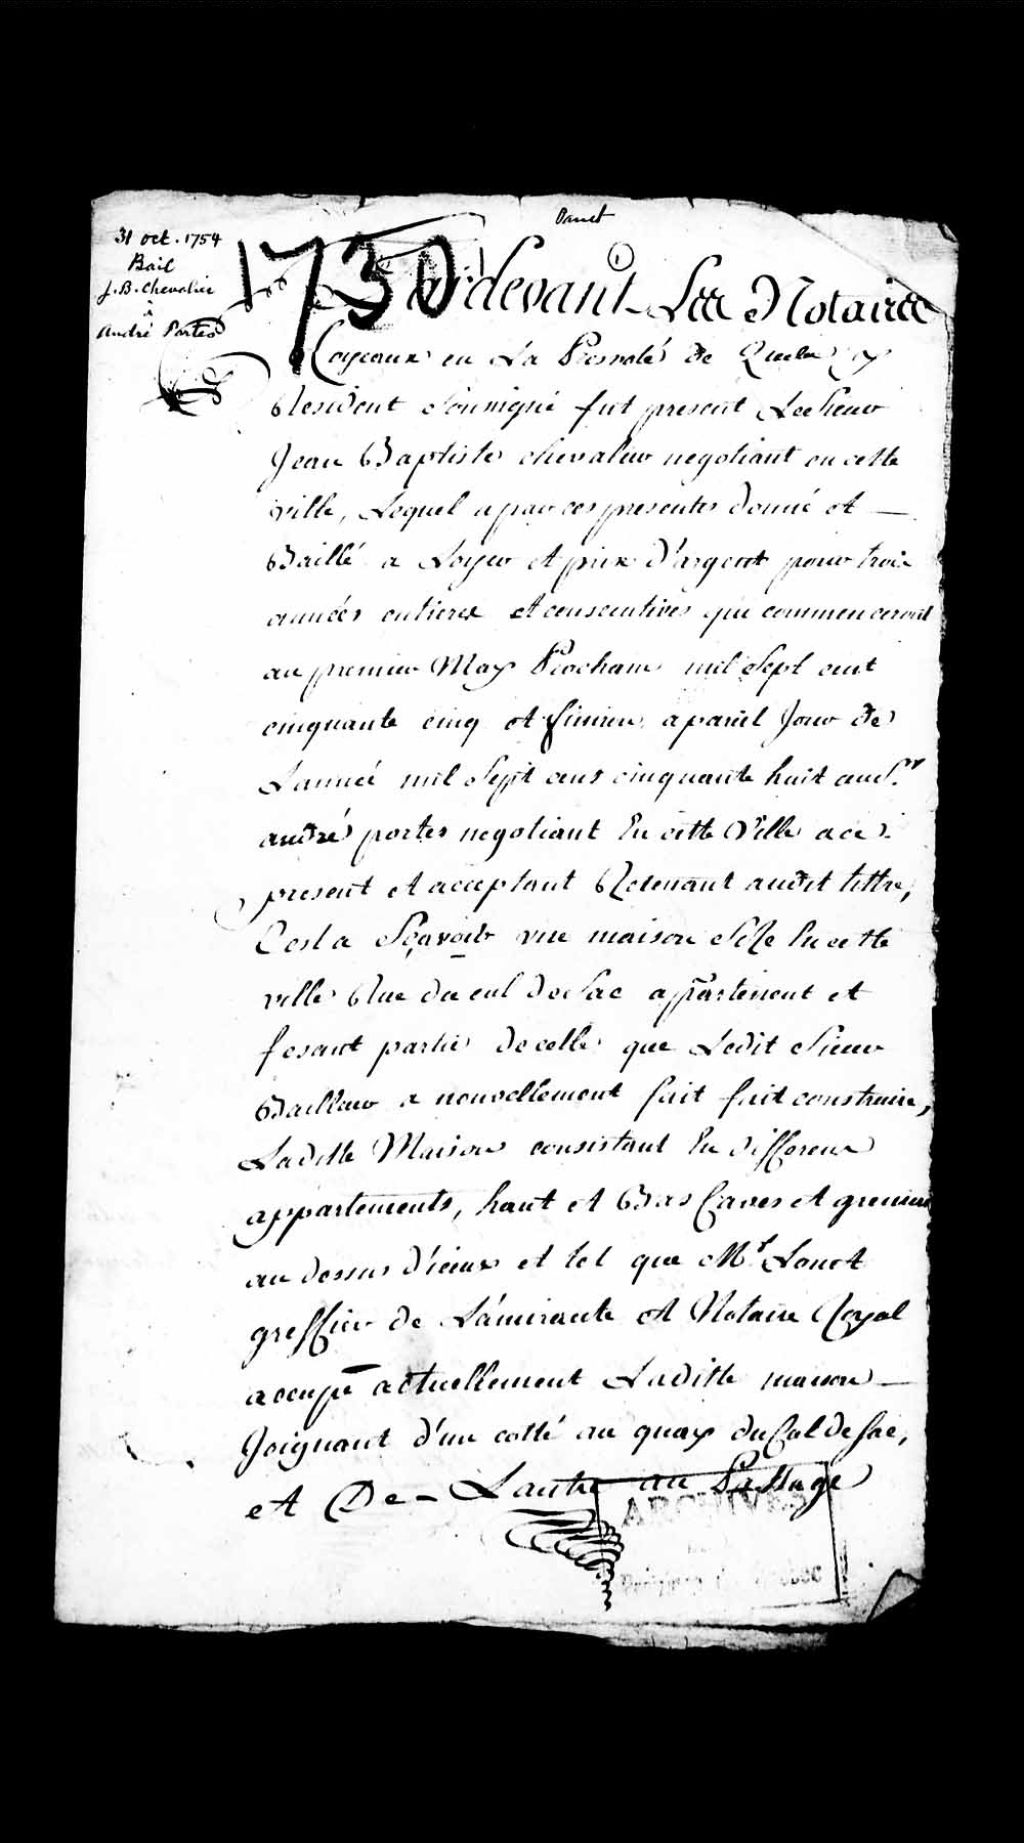 Panet
31 oct. 1754
Bail
J. B. Chevalier
à
André Portes
1730
1
Pardevant Les Notaires
Royeaux en La Prevoté de Quebec y
Resident Soussigné fut present Le Sieur
Jean Baptiste chevalier negotiant en cette
ville, Lequel a par ces presentes donné et —
Baillé a Loyer et prix d'argent pour trois
années entieres et consecutives qui commenceront
au premier May Prochain mil Sept cent
cinquante cinq et finiru a pareil Jour de
Lannée mil Sept cens cinquante huit au S.r
andré portes negotiant En cette Ville a ce
present et acceptant Retenant audit tittre,
C'est a Sçavoir une maison Size En cette
ville Rue du cul de Sac appartenent et
fesant partie de celle que Ledit Sieur
Bailleur a nouvellement fait fait construire,
Laditte Maison consistant En differens
appartements, haut et Bas Caves et greniers
au dessus d'iceux et tel que M.r
greffier de L'amirauté et Notaire Royal
occupe actuellement Laditte maison —
Joignant d'un cotté au quay du Cul de Sac,
et De — Lautre au Passage
ARCHIVES